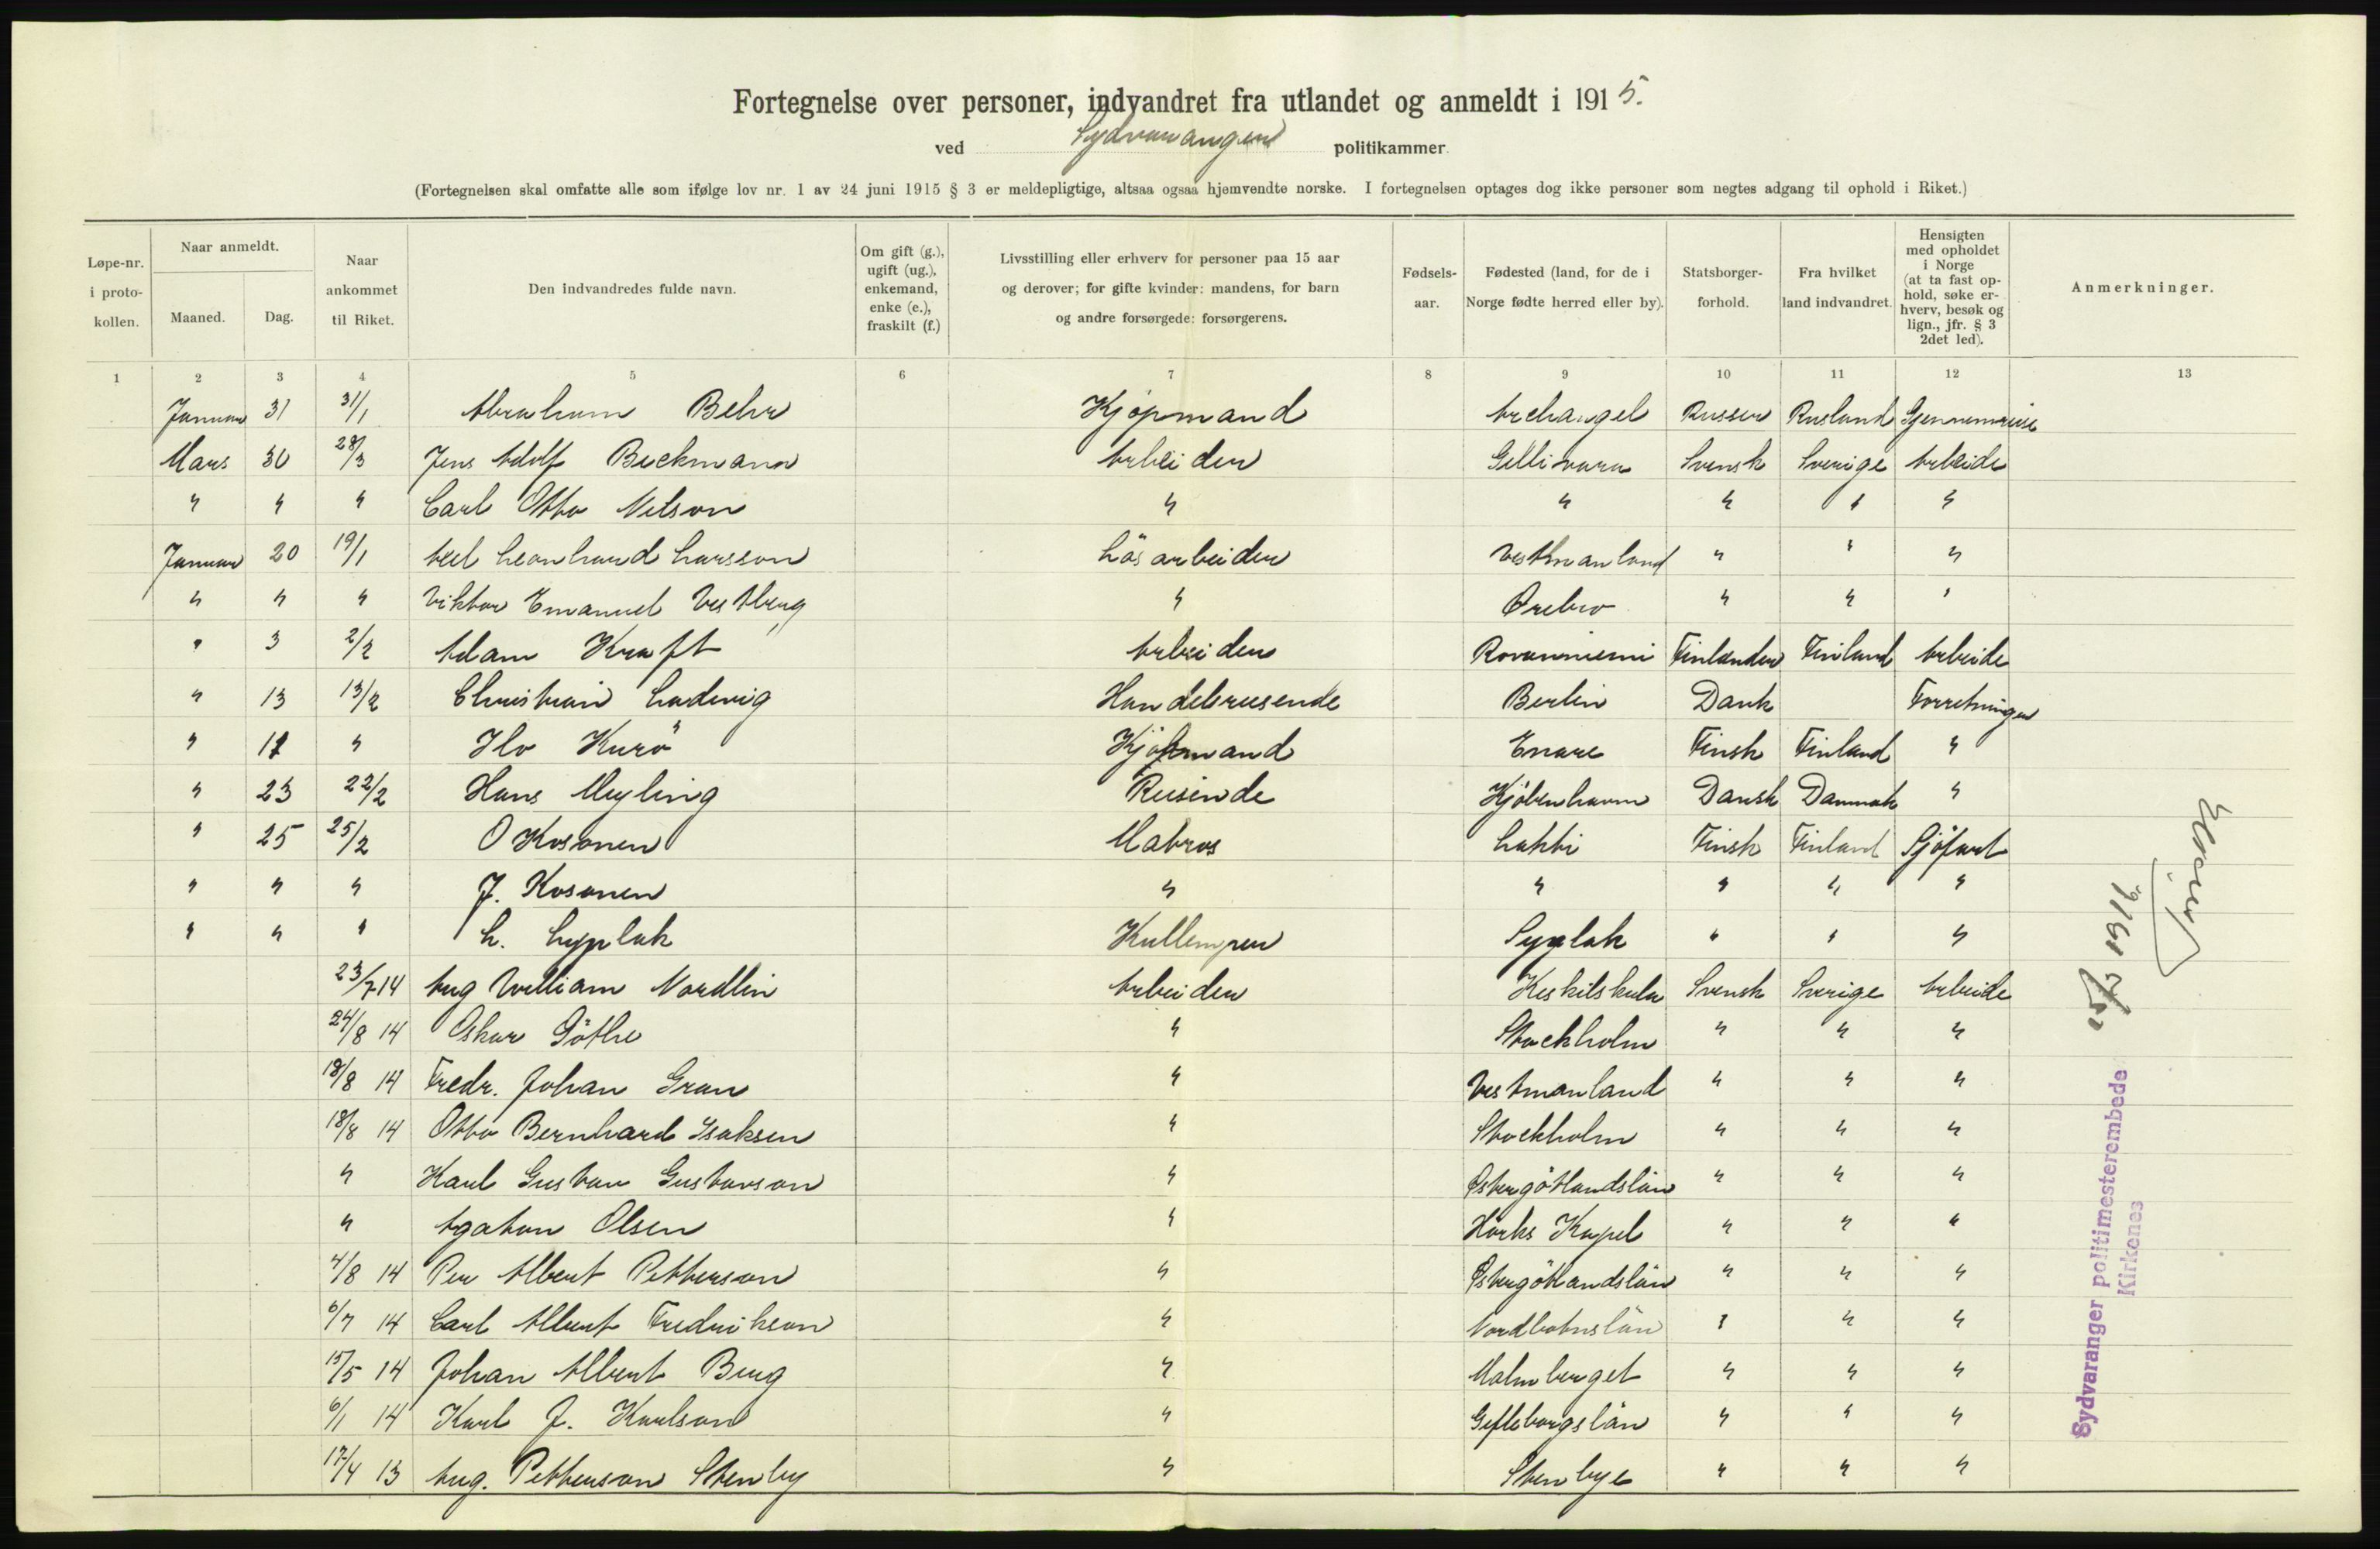 Fortegnelse over personer, indvandret fra utlandet og anmeldt i 1915.
ved Sydvaranger politikammer
(Fortegnelsen skal omfatte alle som ifølge lov nr. 1 av 24 juni 1915 § 3 er meldepligtige, altsaa ogsaa hjemvendte norske. I fortegnelsen optages dog ikke personer som negtes adgang til ophold i Riket.)
Løpe-nr. i proto- kollen.
Naar anmeldt.
Maaned.
Dag.
Naar ankommet til Riket.
Den indvandredes fulde navn.
Om gift (g.), ugift (ug.), enkemand, enke (e.), fraskilt (f.)
Livsstilling eller erhverv for personer paa 15 aar og derover; for gifte kvinder: mandens, for barn og andre forsørgede: forsørgerens.
Fødsels- aar.
Fødested (land, for de i Norge fødte herred eller by).
Statsborger- forhold.
Fra hvilket land indvandret.
Hensigten med opholdet i Norge (at ta fast op- hold, søke er- hverv, besøk og lign., jfr. § 3 2det led).
Anmerkninger.
1 2 3 4 5 6 7 8 9 10 11 12 13
Januar 31 31/1 Abraham Behr Kjöpmand Archangel Russer Rusland Gjennemreise
Mars 30 28/3 Jens Adolf Beckmann Arbeider Gellivara Svensk Sverige Arbeide
" " " Carl Otto Nilson " " " " "
Januar 20 19/1 Axel Leonhard Larsson Lösarbeider Vestmanland " " "
" " " Viktor Emanuel Vestberg " Örebro " " "
" 3 2/2 Adam Kraft Arbeider Rovaniemi Finlænder Finland Arbeide
" 13 13/2 Christian Ludevig Handelsreisende Berlin Dansk Forretninger
" 17 " Ilo Kurö Kjöpmand Enare Finsk Finland "
" 23 22/2 Hans Meyling Reisende Kjöbenhavn Dansk Danmark "
" 25 25/2 O Kosonen Matros Lahti Finsk Finland Sjöfart
" " " J. Kosonen " " " " "
" " " L. Lyplak Kullemper Syplak " " "
23/7 14 Aug William Nordlin Arbeider Keskilskula Svensk Sverige Arbeide
24/8 14 Oskar Göthe " Stockholm " " "
18/8 14 Fredr. Johan Gran " Vestmanland " " "
18/8 14 Otto Bernhard Isaksen " Stockholm " " "
" Karl Gustav Gustavson " Östergötlandslän " " "
" Agaton Olsen " Hörks Kapel " " "
4/8 14 Per Albert Petterson " Östergötlandslän " " "
6/7 14 Carl Albert Fredrikson " Nordbotnslän " " "
15/5 14 Johan Albert Berg " Malmberget " " "
6/1 14 Karl J. Karlson " Gefleborgslän " " "
17/4 13 Aug. Petterson Stenby " Stenbye " " "
Sydvaranger politimesterembede
Kirkenes
1916